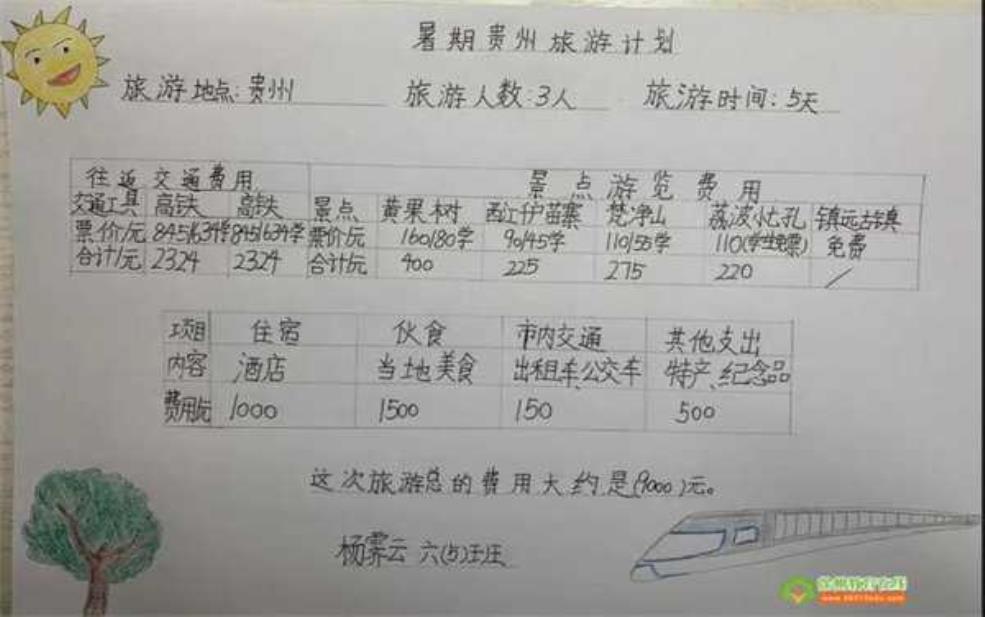 暑期贵州旅游计划
旅游地点:贵州 旅游人数:3人 旅游时间:5天
往返交通费用 景点游览费用
交通工具 高铁 高铁 景点 黄果树 西江千户苗寨 梵净山 荔波小七孔 镇远古镇
票价/元 845/634学 845/634学 票价/元 160/80学 90/45学 110/55学 110(学生免票) 免费
合计/元 2324 2324 合计/元 400 225 275 220 /
项目 住宿 伙食 市内交通 其他支出
内容 酒店 当地美食 出租车、公交车 特产、纪念品
费用/元 1000 1500 150 500
这次旅游总的费用大约是(9000)元。
杨霁云 六(5)汪庄